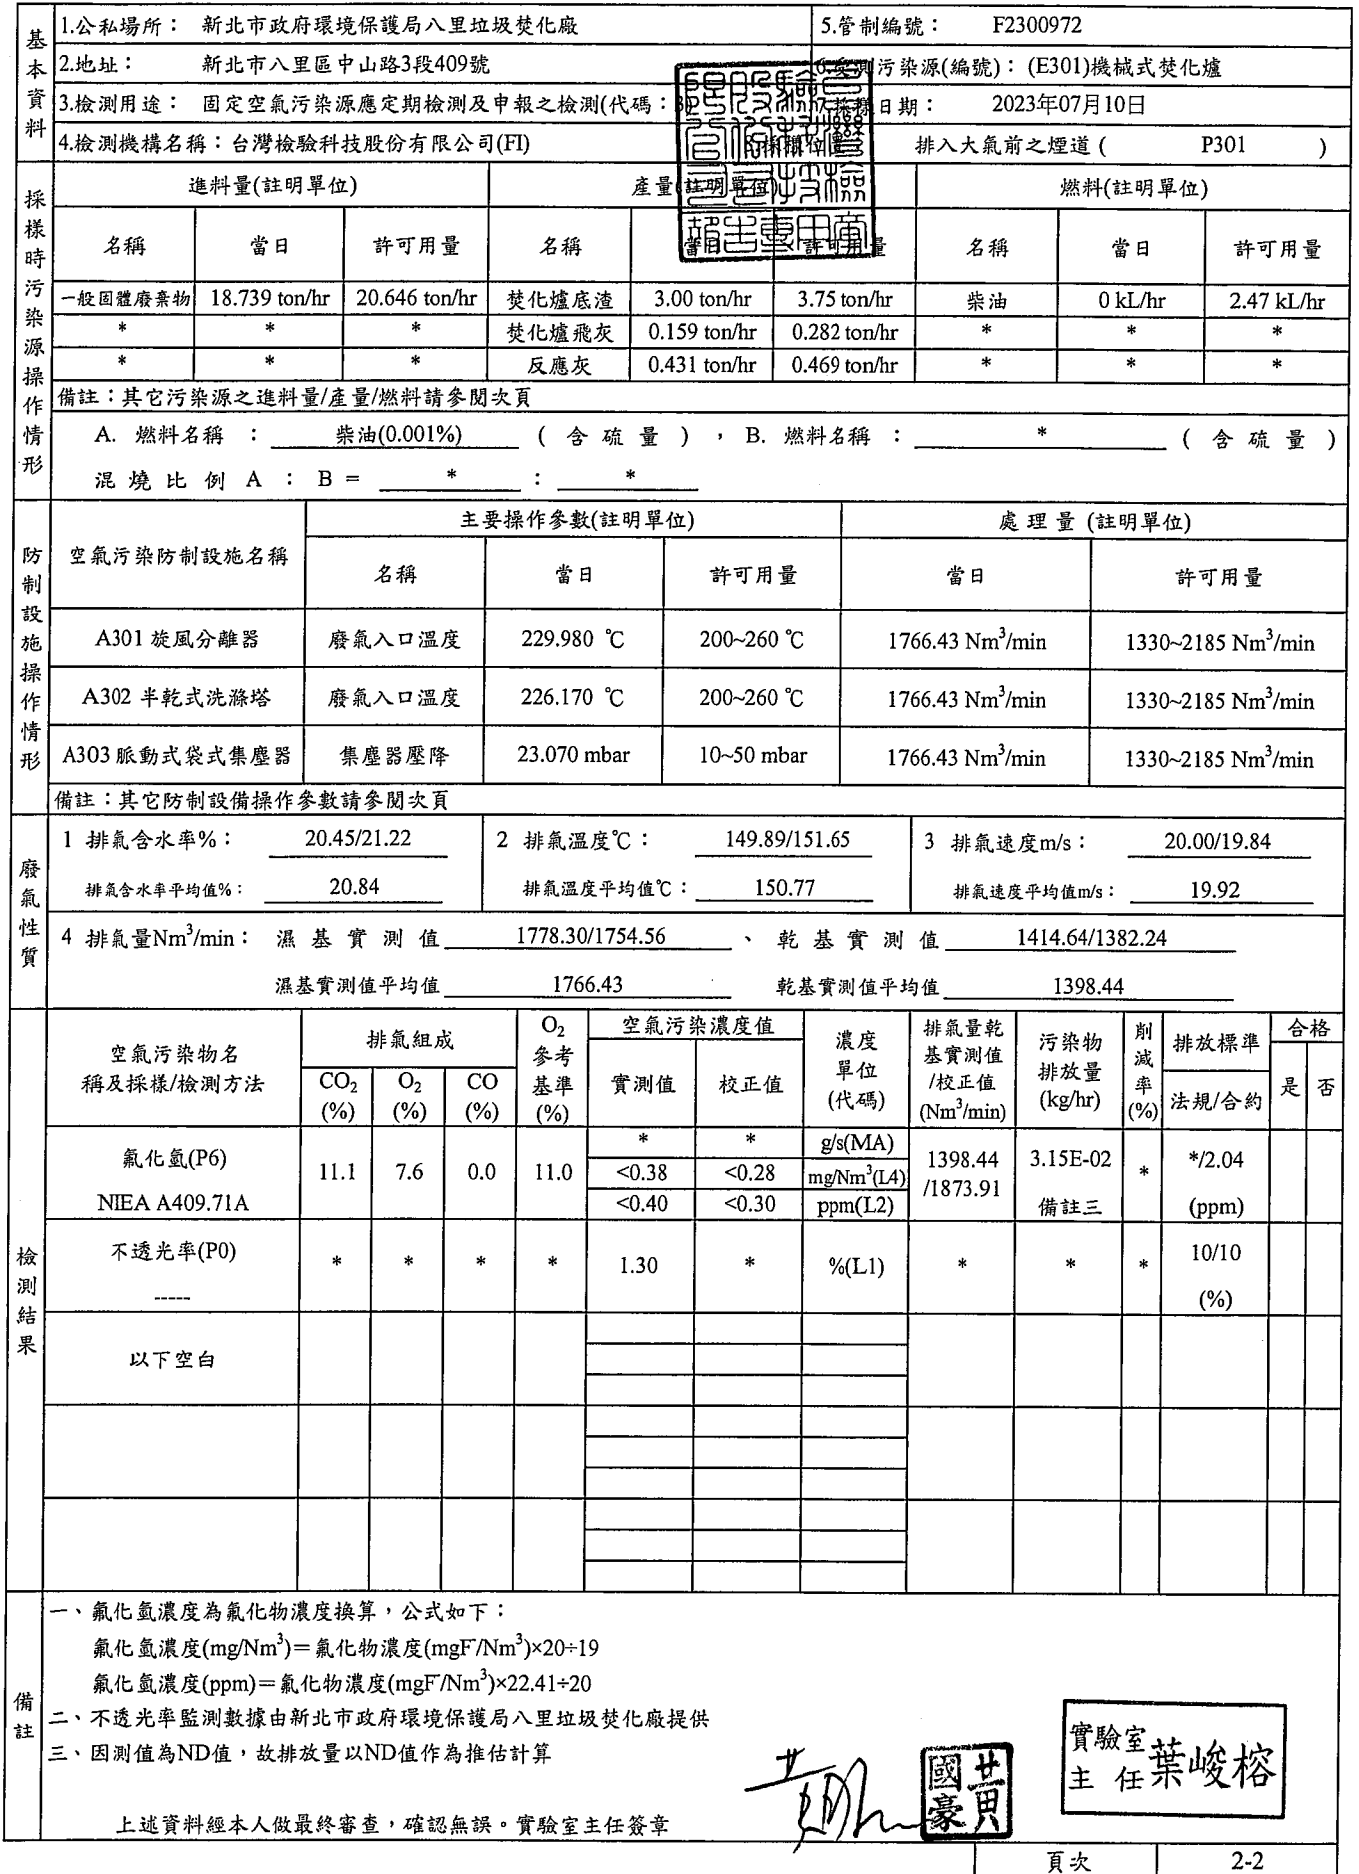 基本資料
1.公私場所： 新北市政府環境保護局八里垃圾焚化廠 5.管制編號： F2300972
2.地址： 新北市八里區中山路3段409號 測污染源(編號)：(E301)機械式焚化爐
3.檢測用途： 固定空氣污染源應定期檢測及申報之檢測(代碼： 樣日期： 2023年07月10日
4.檢測機構名稱：台灣檢驗科技股份有限公司(FI) 排入大氣前之煙道 ( P301 )
採樣時污染源操作情形
進料量(註明單位) 產量(註明單位) 燃料(註明單位)
名稱 當日 許可用量 名稱 當日 許可用量 名稱 當日 許可用量
一般固體廢棄物 18.739 ton/hr 20.646 ton/hr 焚化爐底渣 3.00 ton/hr 3.75 ton/hr 柴油 0 kL/hr 2.47 kL/hr
* * * 焚化爐飛灰 0.159 ton/hr 0.282 ton/hr * * *
* * * 反應灰 0.431 ton/hr 0.469 ton/hr * * *
備註：其它污染源之進料量/產量/燃料請參閱次頁
A. 燃料名稱 ： 柴油(0.001%) ( 含硫量 ) ， B. 燃料名稱 ： * ( 含硫量 )
混燒比例 A ： B = * ： *
防制設施操作情形
空氣污染防制設施名稱 主要操作參數(註明單位) 處理量 (註明單位)
名稱 當日 許可用量 當日 許可用量
A301 旋風分離器 廢氣入口溫度 229.980 ℃ 200~260 ℃ 1766.43 Nm³/min 1330~2185 Nm³/min
A302 半乾式洗滌塔 廢氣入口溫度 226.170 ℃ 200~260 ℃ 1766.43 Nm³/min 1330~2185 Nm³/min
A303 脈動式袋式集塵器 集塵器壓降 23.070 mbar 10~50 mbar 1766.43 Nm³/min 1330~2185 Nm³/min
備註：其它防制設備操作參數請參閱次頁
廢氣性質
1 排氣含水率%： 20.45/21.22 2 排氣溫度℃： 149.89/151.65 3 排氣速度m/s： 20.00/19.84
排氣含水率平均值%： 20.84 排氣溫度平均值℃： 150.77 排氣速度平均值m/s： 19.92
4 排氣量Nm³/min： 濕基實測值 1778.30/1754.56 、 乾基實測值 1414.64/1382.24
濕基實測值平均值 1766.43 乾基實測值平均值 1398.44
檢測結果
空氣污染物名稱及採樣/檢測方法 排氣組成 O₂參考基準(%) 空氣污染濃度值 濃度單位(代碼) 排氣量乾基實測值/校正值(Nm³/min) 污染物排放量(kg/hr) 削減率(%) 排放標準 合格
CO₂(%) O₂(%) CO(%) 實測值 校正值 法規/合約 是 否
氟化氫(P6) NIEA A409.71A 11.1 7.6 0.0 11.0 * * g/s(MA) 1398.44/1873.91 3.15E-02 備註三 * */2.04 (ppm)
<0.38 <0.28 mg/Nm³(L4)
<0.40 <0.30 ppm(L2)
不透光率(P0) ----- * * * * 1.30 * %(L1) * * * 10/10 (%)
以下空白
備註
一、氟化氫濃度為氟化物濃度換算，公式如下：
氟化氫濃度(mg/Nm³)＝氟化物濃度(mgF⁻/Nm³)×20÷19
氟化氫濃度(ppm)＝氟化物濃度(mgF⁻/Nm³)×22.41÷20
二、不透光率監測數據由新北市政府環境保護局八里垃圾焚化廠提供
三、因測值為ND值，故排放量以ND值作為推估計算
上述資料經本人做最終審查，確認無誤。實驗室主任簽章
黃國豪
實驗室主任 葉峻榕
頁次 2-2